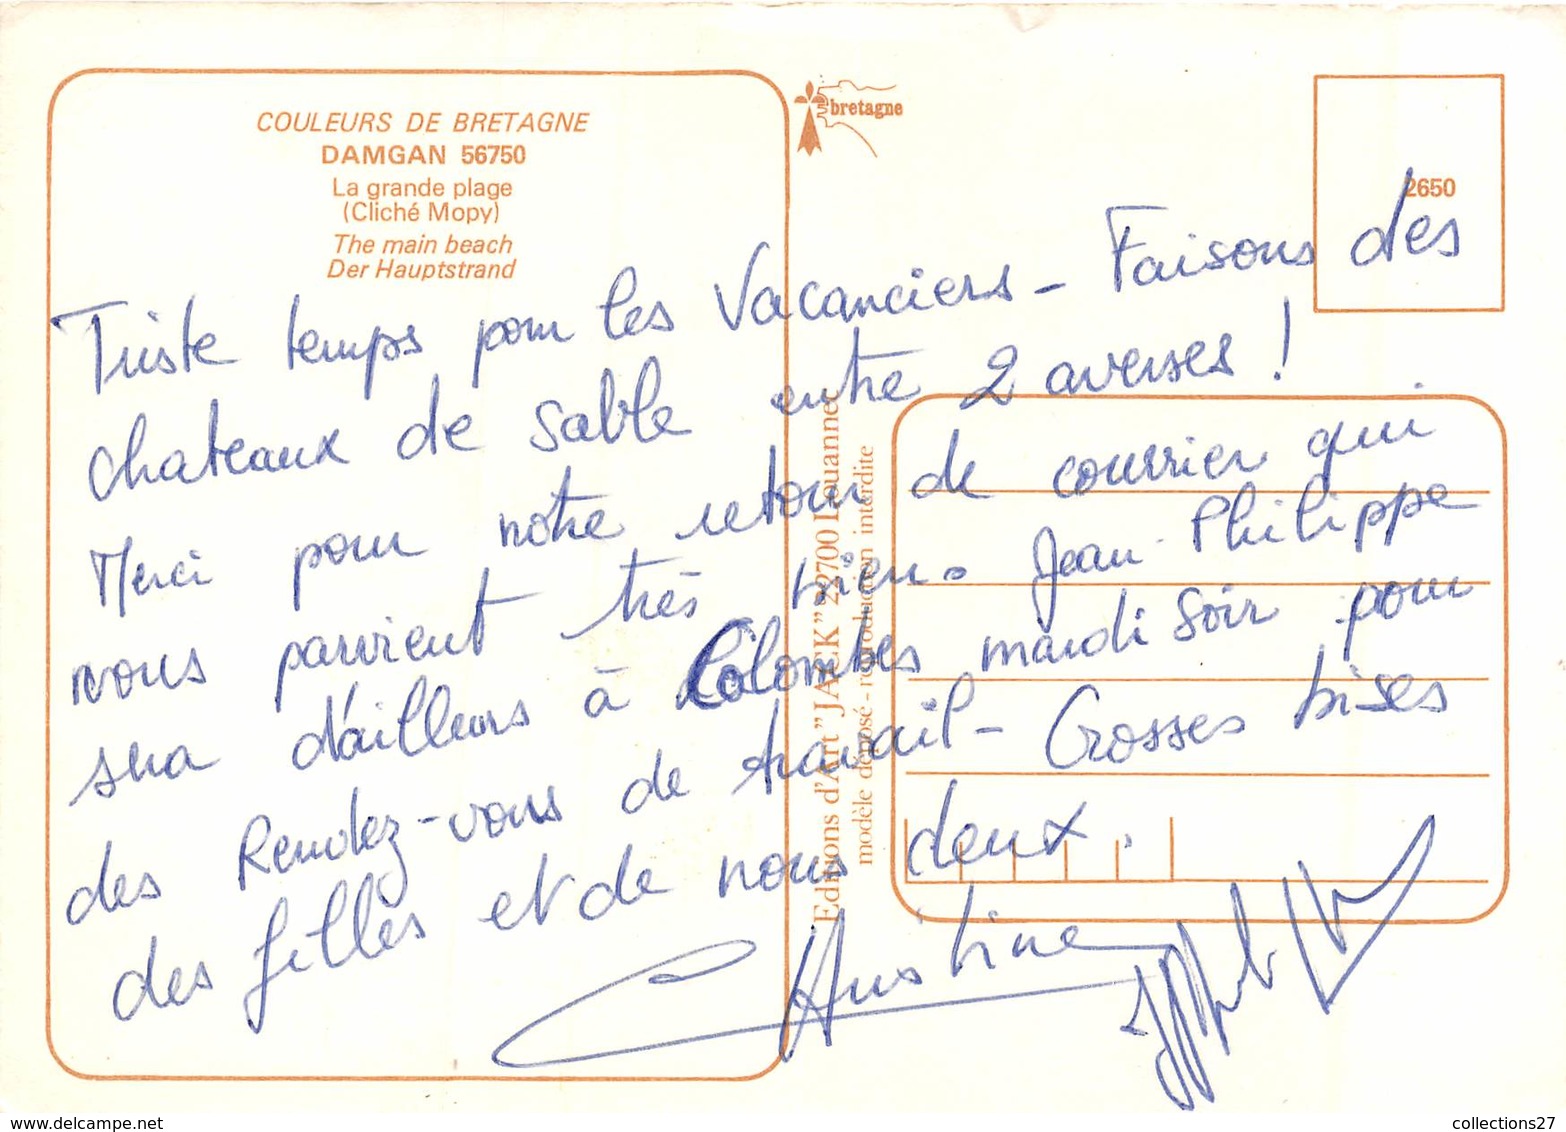 COULEURS DE BRETAGNE
DAMGAN 56750
La grande plage
(Cliché Mopy)
The main beach
Der Hauptstrand
bretagne
2650
Triste temps pour les vacanciers - Faisons des
chateaux de sable entre 2 averses !
Merci pour notre retour de courrier qui
nous parvient très bien. Jean-Philippe
sera d'ailleurs à Colombes mardi soir pour
des Rendez-vous de travail - Grosses bises
des filles et de nous deux.
Christine
Editions d'Art "JACK" 22700 Louannec
modèle déposé - reproduction interdite
collections27